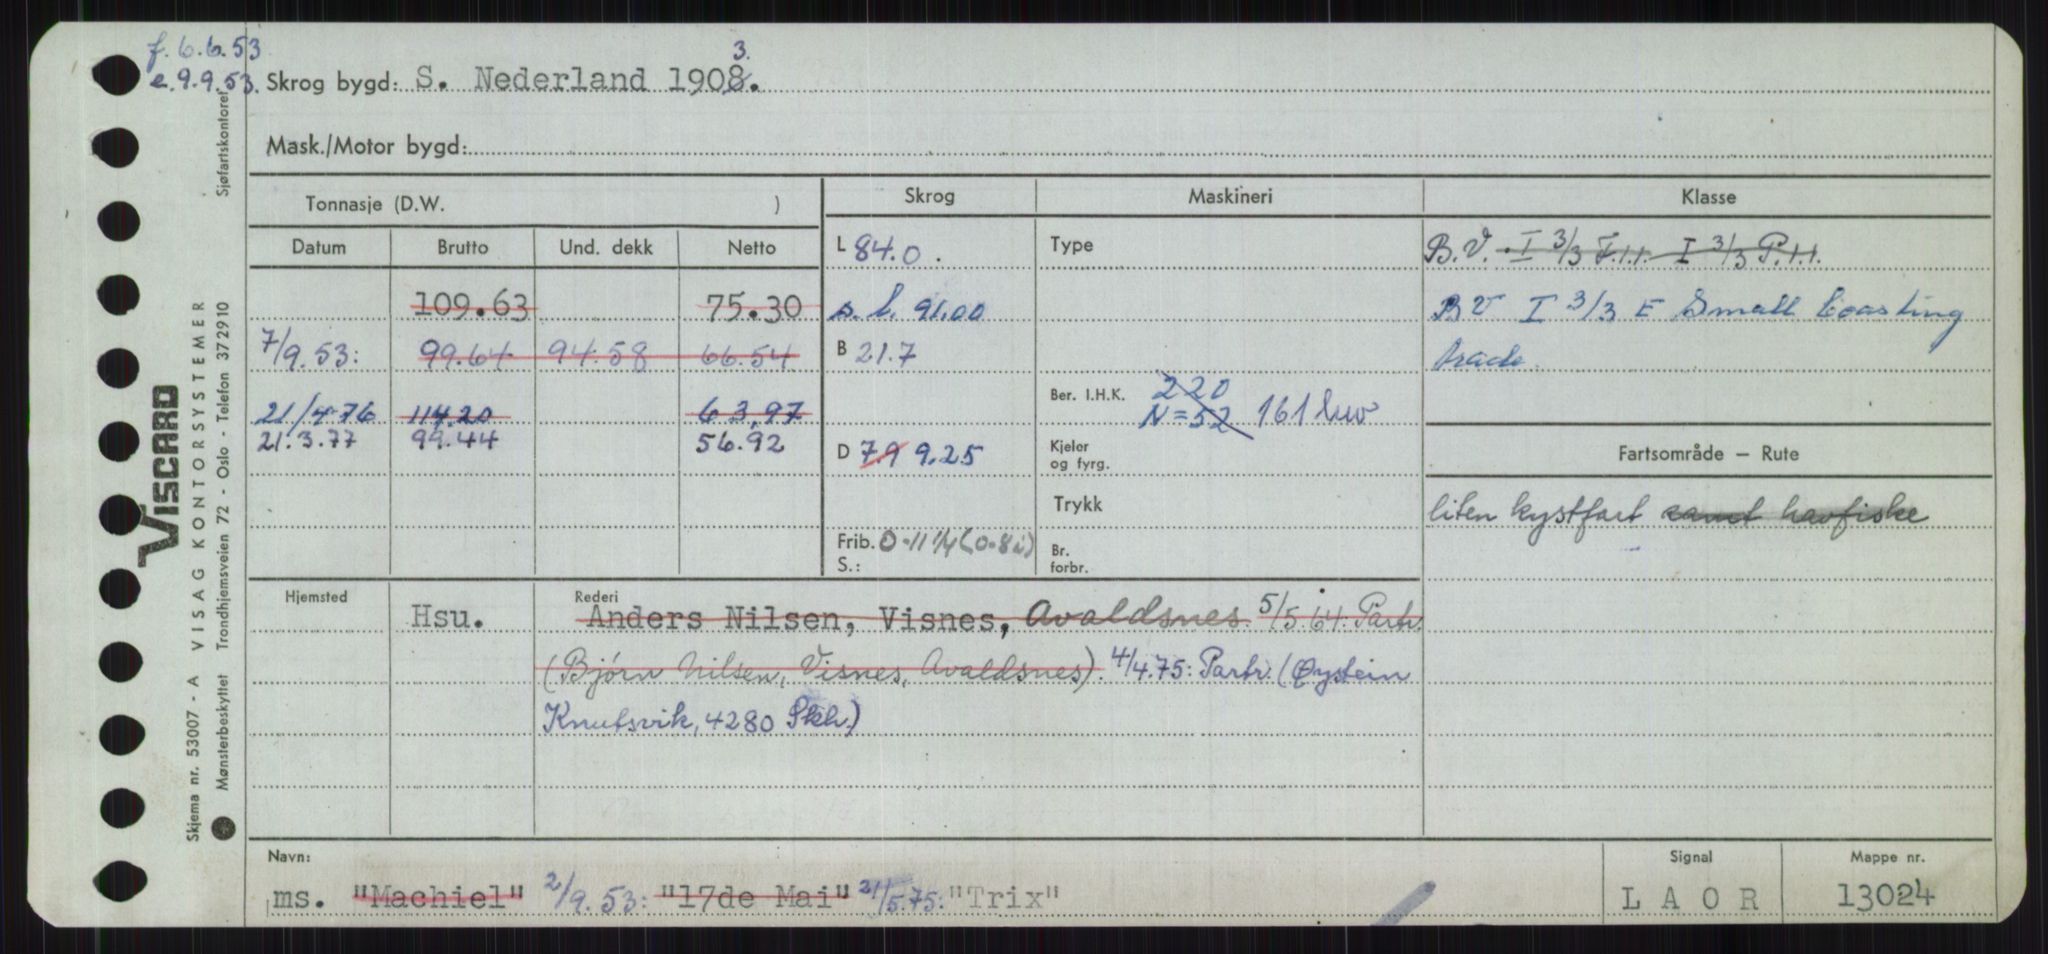 f. 6.6.53
e. 9.9.53.
3.
Skrog bygd: S. Nederland 1908.
Mask./Motor bygd:
Tonnasje (D.W. )
Skrog
Maskineri
Klasse
Datum Brutto Und. dekk Netto
L 84.0.
Type
B.V. I 3/3 F.1.1. I 3/3 P.1.1.
109.63 75.30
s. l. 91.00
BV I 3/3 E Small Coasting
7/9.53: 99.64 94.58 66.54
B 21.7
trade.
21/4-76 114.20 63,97
Ber. I.H.K. 220
N=52 161 kw
21.3.77 99.44 56.92
D 7.9 9.25
Kjeler
og fyrg.
Fartsområde – Rute
Trykk
liten kystfart samt havfiske
Frib. 0-11 1/4 (0-8i)
S.:
Br.
forbr.
Hjemsted
Hsu.
Rederi
Anders Nilsen, Visnes, Avaldsnes. 5/5.64: Partr.
(Bjørn Nilsen, Visnes, Avaldsnes). 4/4.75: Partr. (Øystein
Knutsvik, 4280 Skh.)
Navn:
ms. "Machiel" 2/9.53: "17de Mai" 21/5.75: "Trix"
Signal
L A O R
Mappe nr.
13024
VISCARD
Skjema nr. 53007 - A VISAG KONTORSYSTEMER
Mønsterbeskyttet Trondhjemsveien 72 - Oslo - Telefon 372910
Sjøfartskontoret